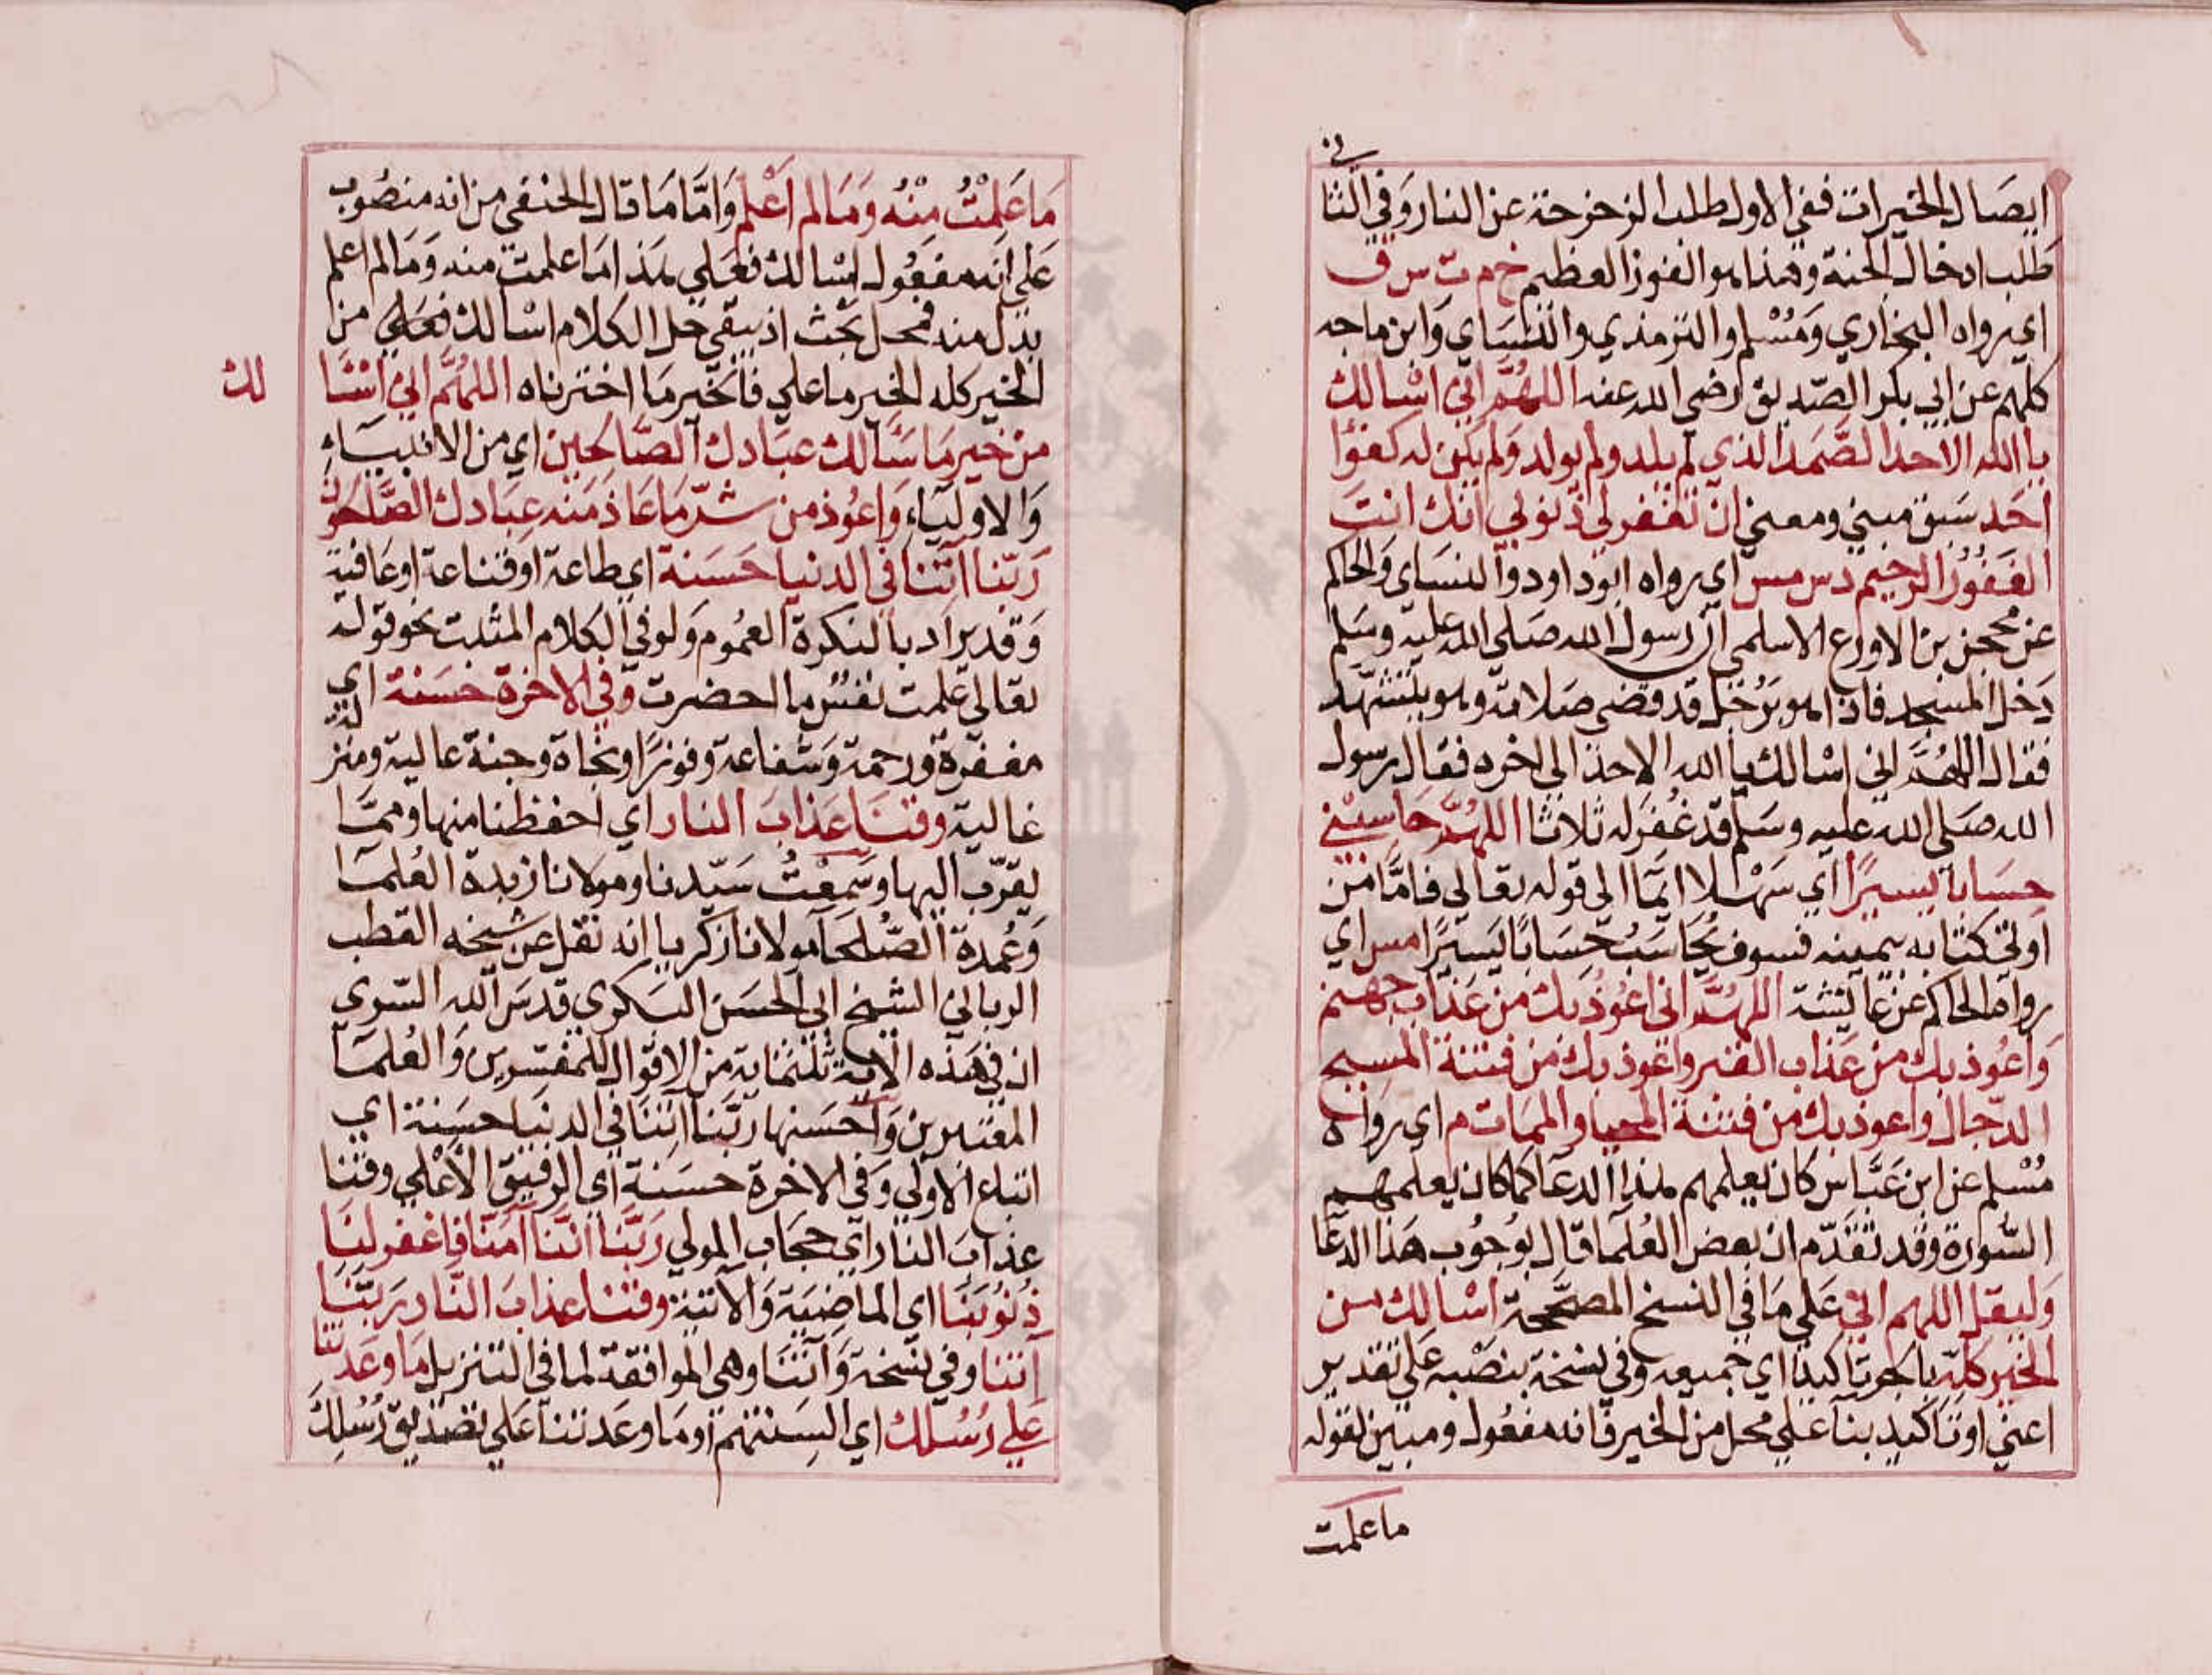 ايصال الخيرات ففي الاول طلب الزحزحة عن النار وفي الثا
ني
طلب ادخال الجنة وهذا هو الفوز العظيم خ م ت س ق
اي رواه البخاري ومسلم والترمذي والنساي وابن ماجه
كلهم عن ابي بكر الصديق رضي الله عنه اللهم اني اسالك
يا الله الاحد الصمد الذي لم يلد ولم يولد ولم يكن له كفوًا
احد سبق مبني ومعني ان تغفر لي ذنوبي انك انت
الغفور الرحيم د س مس اي رواه ابو داود والنساي والحاكم
عن محجن بن الاورع الاسلمي ان رسول الله صلي الله عليه وسلم
دخل المسجد فاذا هو برجل قد قضي صلاته وهو يتشهد
فقال اللهم اني اسالك يا الله الاحد الي اخره فقال رسول
الله صلي الله عليه وسلم قد غفر له ثلاثا اللهم حاسبني
حسابا يسيرًا اي سهلا ايما الي قوله تعالي فاما من
اوتي كتابه بيمينه فسوف يحاسب حسابًا يسيرًا مس اي
رواه الحاكم عن عايشة اللهم اني اعوذ بك من عذاب جهنم
واعوذ بك من عذاب القبر واعوذ بك من فتنة المسيح
الدجال واعوذ بك من فتنة المحيا والممات م اي رواه
مسلم عن ابن عباس كان يعلمهم هذا الدعا كما كان يعلمهم
السورة وقد تقدم ان بعض العلما قال بوجوب هذا الدعا
وليقل اللهم اني علي ما في النسخ المصححة اسالك من
الخير كله بالجر تاكيدا اي جميعه وفي نسخة بنصبه علي تقدير
اعني او تاكيد بنا علي محل من الخير فانه مفعول ومبين لقوله
ما علمت
ما علمت منه وما لم اعلم واما ما قال الحنفي من انه منصوب
علي انه مفعول اسالك فعلي هذا ما علمت منه وما لم اعلم
بدل منه فمحل بحث اذ يبقي حل الكلام اسالك فعلي من
الخير كله الخير ما علي فالخير ما اخترناه اللهم اني اسا لك
من خير ما سالك عبادك الصالحين اي من الانبياء
والاولياء واعوذ من شر ما عاذ منه عبادك الصالحون
ربنا اتنا في الدنيا حسنة اي طاعة او قناعة او عافية
وقد يراد بالنكرة العموم ولو في الكلام المثبت نحو قوله
تعالي علمت نفس ما احضرت وفي الاخرة حسنة اي
مغفرة ورحمة وشفاعة وفوزا ونجاة وجنة عالية ومنز لة
غالية وقنا عذاب النار اي احفظنا منها ومما
يقرب اليها وسمعت سيدنا ومولانا زبدة العلما
وعمدة الصلحا مولانا زكريا انه نقل عن شيخه القطب
الرباني الشيخ ابي الحسن البكري قدس الله السري
ان في هذه الاية ثلثماية من الاقوال للمفسرين والعلما
المعتبرين واحسنها ربنا اتنا في الدنيا حسنة اي
اتباع الاولي وفي الاخرة حسنة اي الرفيق الاعلي وقنا
عذاب النار اي حجاب المولي ربنا اننا امنا فاغفر لنا
ذنوبنا اي الماضية والاتية وقنا عذاب النار ربنا
اتنا وفي نسخة واتنا وهي الموافقة لما في التنزيل ما وعدتنا
علي رسلك اي السنتهم او ما وعدتنا علي تصديق رسلك